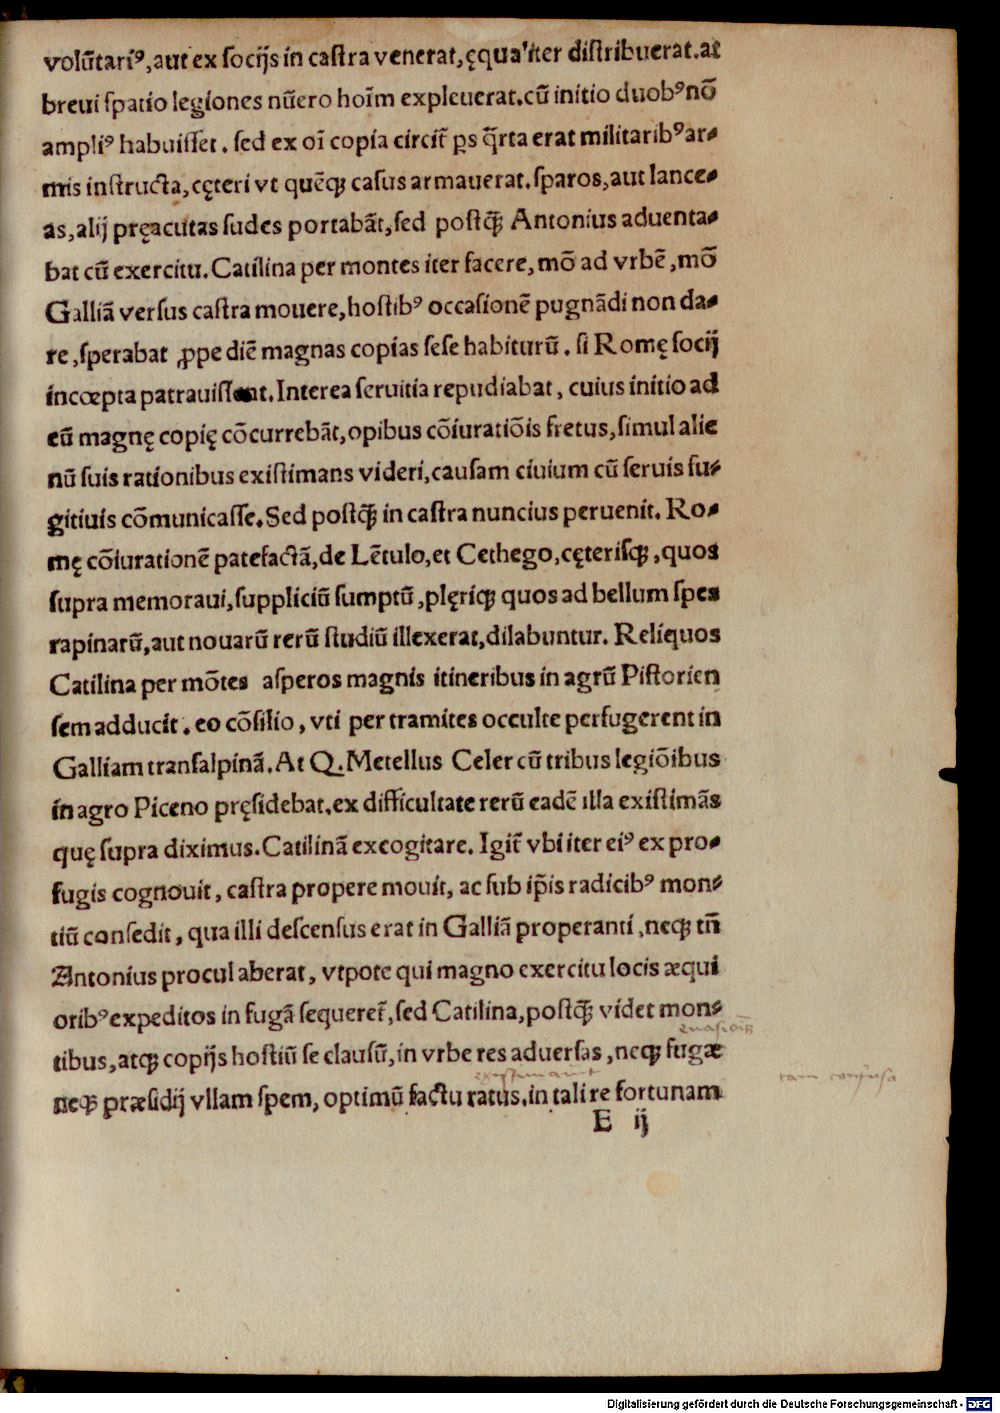 volũtariꝰ, aut ex socijs in castra venerat, ęqualiter distribuerat. ac
breui spatio legiones nũero hoĩm expleuerat. cũ initio duobꝰ nõ
ampliꝰ habuisset. sed ex oĩ copia circit̃ ꝑs q̃rta erat militaribꝰ ar⸗
mis instructa, cęteri vt quẽqꝫ casus armauerat. sparos, aut lance⸗
as, alij pręacutas sudes portabãt, sed postq̃ꝫ Antonius aduenta⸗
bat cũ exercitu. Catilina per montes iter facere, mõ ad vrbẽ, mõ
Galliã versus castra mouere, hostibꝰ occasionẽ pugnãdi non da⸗
re, sperabat ꝓpe diẽ magnas copias sese habiturũ. si Romę socij
incœpta patrauissent. Interea seruitia repudiabat, cuius initio ad
eũ magnę copię cõcurrebãt, opibus cõiuratiõis fretus, simul alie
nũ suis rationibus existimans videri, causam ciuium cũ seruis fu⸗
gitiuis cõmunicasse. Sed postq̃ꝫ in castra nuncius peruenit. Ro⸗
mę cõiurationẽ patefactã, de Lẽtulo, et Cethego, cęterisqꝫ, quos
supra memoraui, suppliciũ sumptũ, plęriqꝫ quos ad bellum spes
rapinarũ, aut nouarũ rerũ studiũ illexerat, dilabuntur. Reliquos
Catilina per mõtes asperos magnis itineribus in agrũ Pistorien
sem adducit. eo cõsilio, vti per tramites occulte perfugerent in
Galliam transalpinã. At Q. Metellus Celer cũ tribus legiõibus
in agro Piceno pręsidebat. ex difficultate rerũ eadẽ illa existimãs
quę supra diximus. Catilinã excogitare. Igit̃ vbi iter eiꝰ ex pro⸗
fugis cognouit, castra propere mouit, ac sub ip̃is radicibꝰ mon⸗
tiũ consedit, qua illi descensus erat in Galliã properanti, neqꝫ tñ
Antonius procul aberat, vtpote qui magno exercitu locis æqui
oribꝰ expeditos in fugã sequeret̃, sed Catilina, postq̃ꝫ videt mon⸗
tibus, atqꝫ copijs hostiũ se clausũ, in vrbe res aduersas, neqꝫ fugæ
existimauit tam confusa
neqꝫ præsidij vllam spem, optimũ factu ratus. in tali re fortunam
E ij
Digitalisierung gefördert durch die Deutsche Forschungsgemeinschaft - DFG